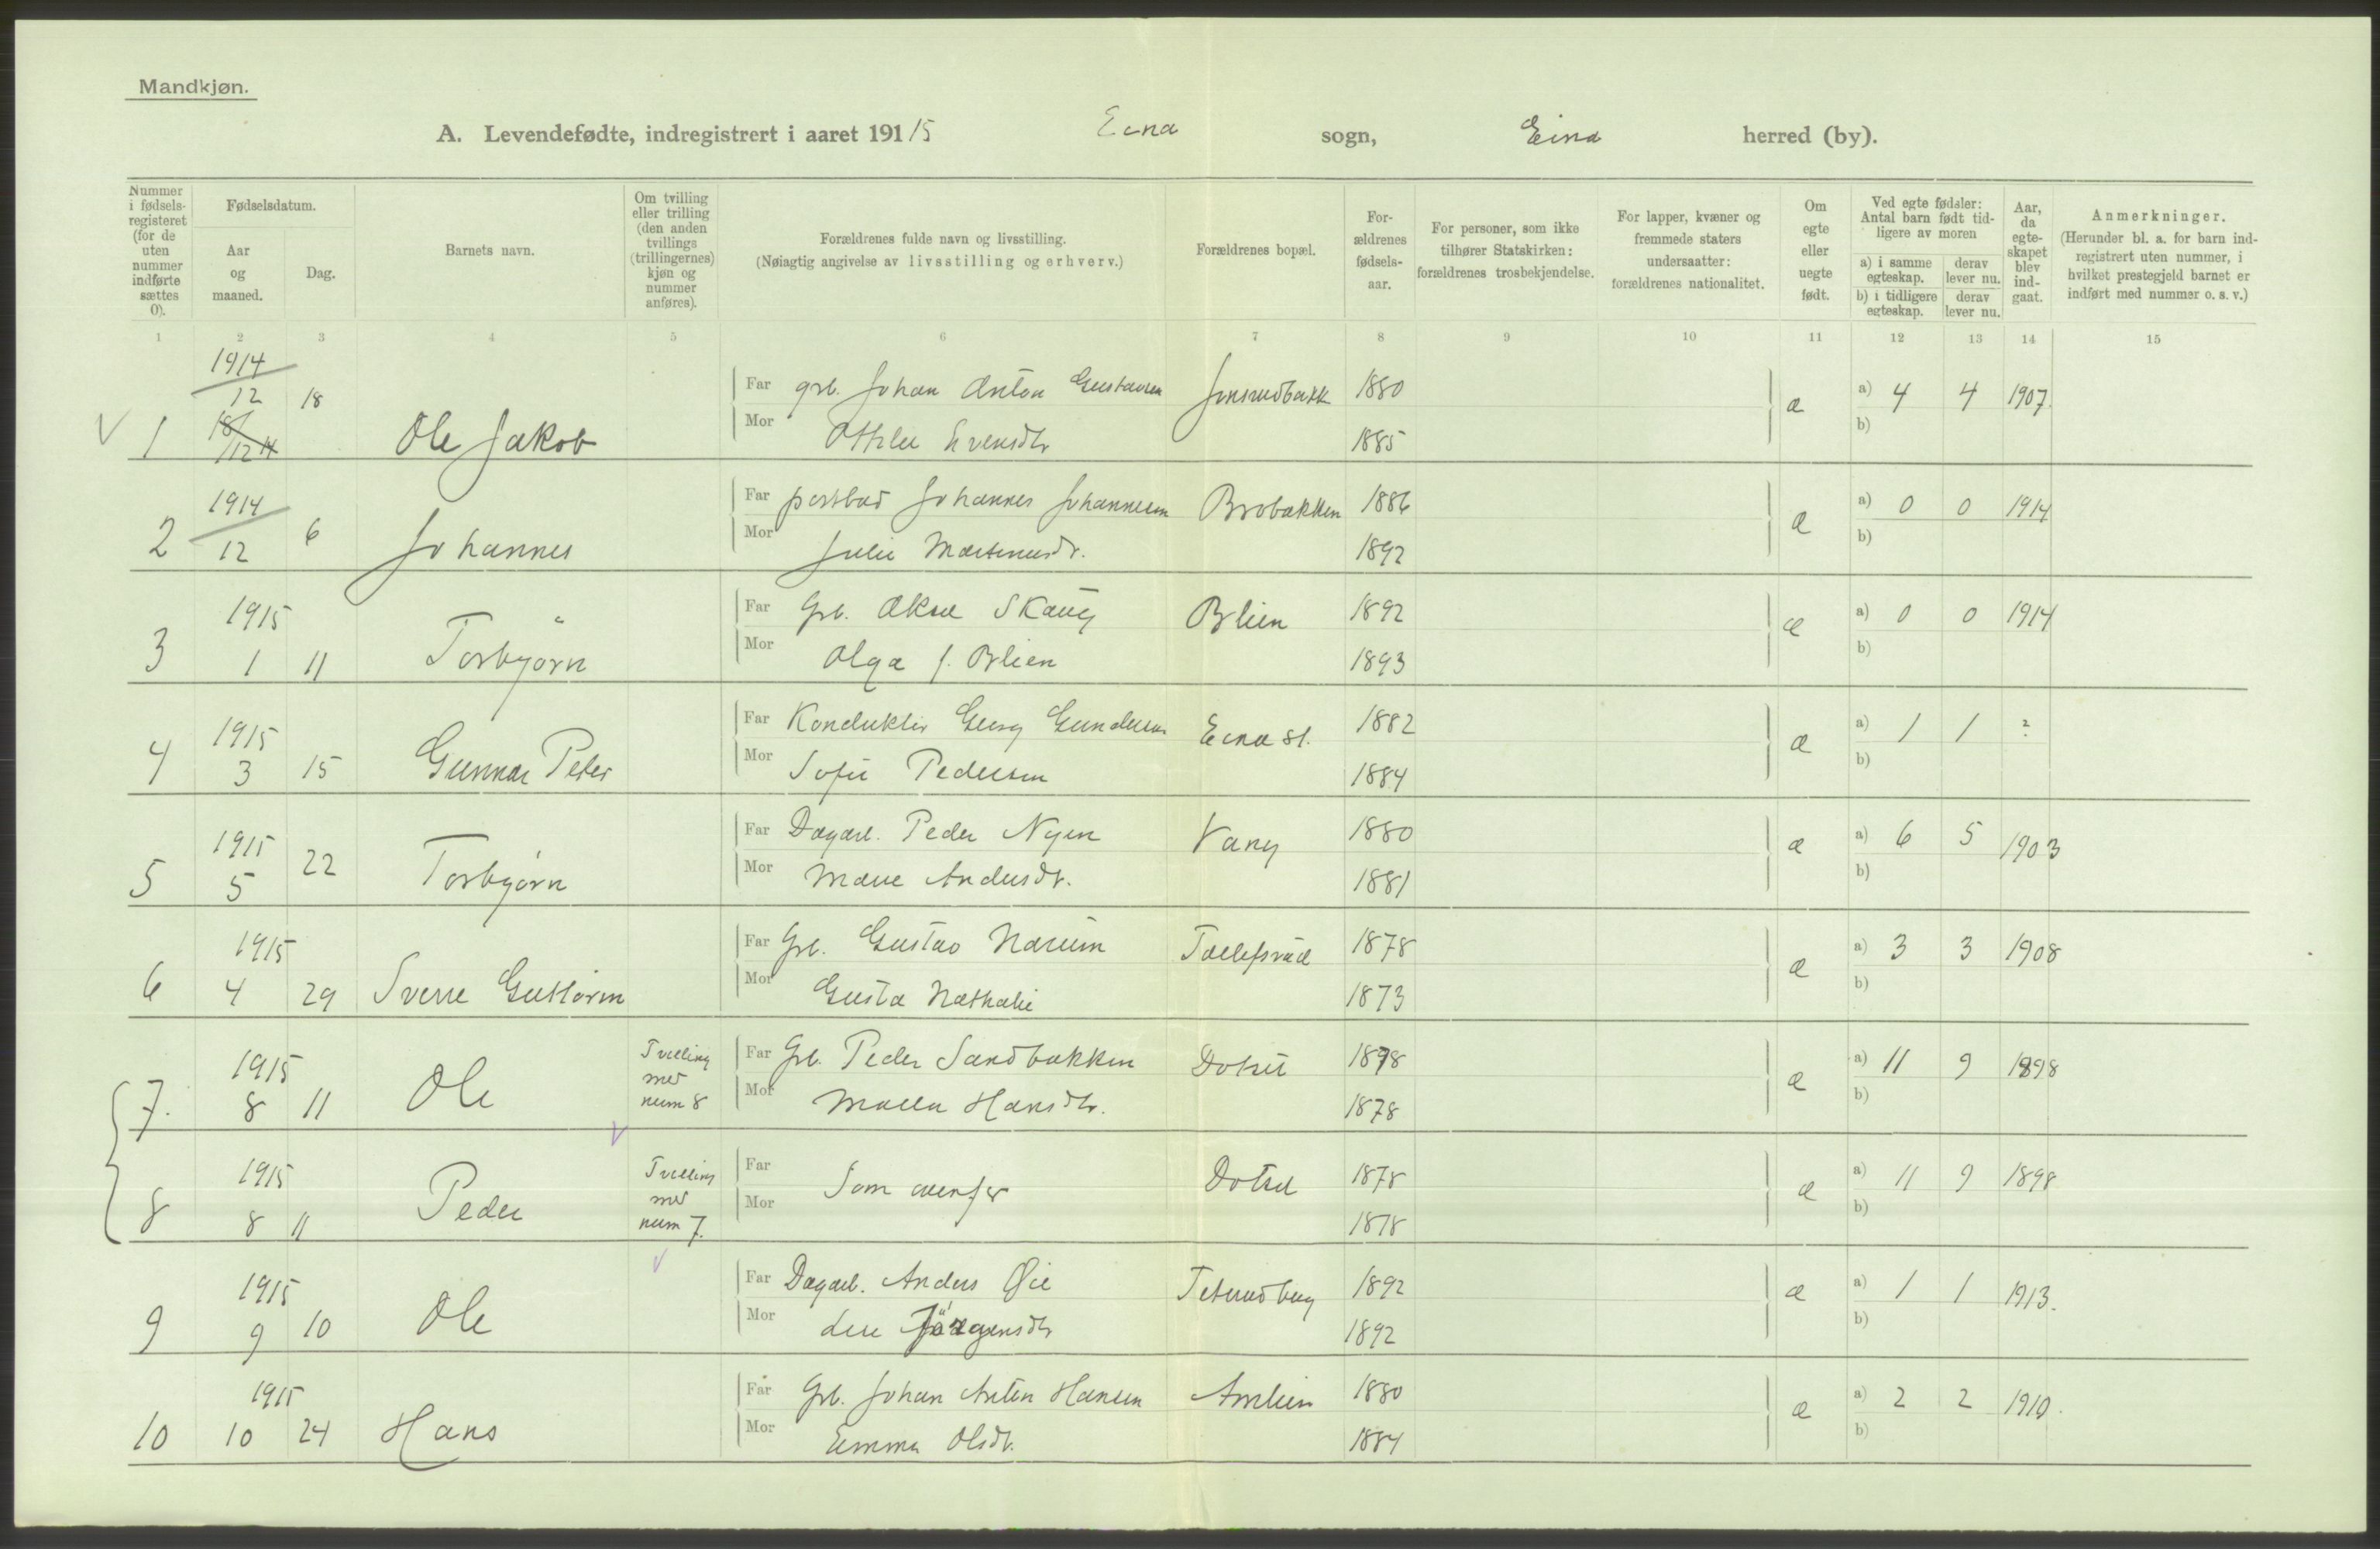 Mandkjøn.
A. Levendefødte, indregistrert i aaret 1915 Eina sogn, Eina herred (by).
Nummer i fødsels-registeret (for de uten nummer indførte sættes 0).
Fødselsdatum.
Aar og maaned.
Dag.
Barnets navn.
Om tvilling eller trilling (den anden tvillings (trillingernes) kjøn og nummer anføres).
Forældrenes fulde navn og livsstilling.
(Nøiagtig angivelse av livsstilling og erhverv.)
Forældrenes bopæl.
For-ældrenes fødsels-aar.
For personer, som ikke tilhører Statskirken: forældrenes trosbekjendelse.
For lapper, kvæner og fremmede staters undersaatter: forældrenes nationalitet.
Om egte eller uegte født.
Ved egte fødsler: Antal barn født tid-ligere av moren
a) i samme egteskap. derav lever nu.
b) i tidligere egteskap. derav lever nu.
Aar, da egte-skapet blev ind-gaat.
Anmerkninger.
(Herunder bl. a. for barn ind-registrert uten nummer, i hvilket prestegjeld barnet er indført med nummer o. s. v.)
1 2 3 4 5 6 7 8 9 10 11 12 13 14 15
1 1914 12 18 Ole Jakob Far grb. Johan Anton Gustavsen 1880 æ a) 4 4 1907.
18/12 14 Mor 1885 b)
2 1914 12 6 Johannes Far postbud Johannes Johannesen Brobakken 1886 æ a) 0 0 1914
Mor Julie Martinusdr. 1892 b)
3 1915 1 11 Torbjörn Far Grb. Aksel Skaug Blien 1892 æ a) 0 0 1914
Mor Olga f. Blien 1893 b)
4 1915 3 15 Gunnar Peder Far Konduktör Georg Gundersen Eina st. 1882 æ a) 1 1 ?
Mor Sofie Pedersen 1884 b)
5 1915 5 22 Torbjörn Far Dagarb. Peder Nyen Vang 1880 æ a) 6 5 1903
Mor Andersdr. 1881 b)
6 1915 4 29 Sverre Guttorm Far Grb. Gustav Narum 1878 æ a) 3 3 1908
Mor Gusta Nathalie 1873 b)
7. 1915 8 11 Ole Tvilling med num 8 Far Grb. Peder Sandbakken Dotset 1878 æ a) 11 9 1898
Mor Hansdtr. 1878 b)
8 1915 8 11 Peder Tvilling med num 7. Far Som ovenfor Dotset 1878 æ a) 11 9 1898
Mor 1878 b)
9 1915 9 10 Ole Far Dagarb. Anders Øie 1892 æ a) 1 1 1913.
Mor Jörgensdtr 1892 b)
10 1915 10 24 Hans Far Grb. Johan Anton Hansen Amlien 1880 æ a) 2 2 1910.
Mor Emma Olsdr. 1884 b)